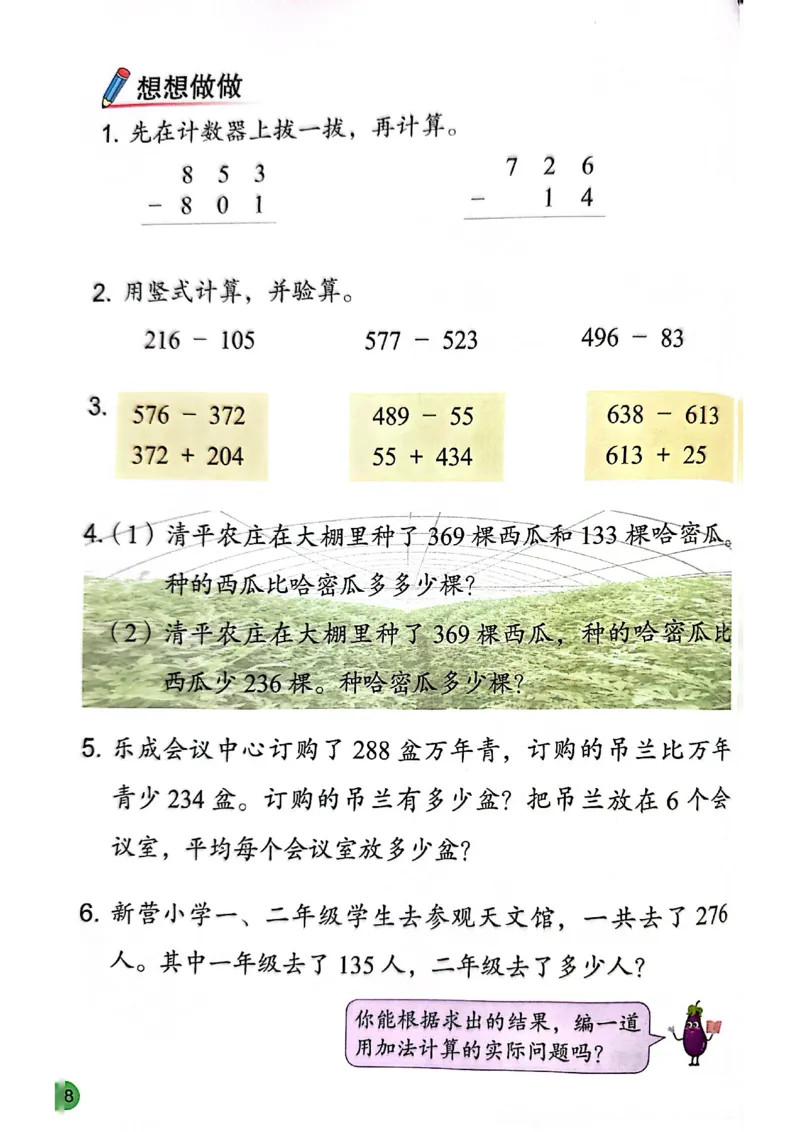 想想做做
1. 先在计数器上拔一拔，再计算。
8 5 3
7 2 6
－ 8 0 1
－ 1 4
2. 用竖式计算，并验算。
216 － 105
577 － 523
496 － 83
3.
576 － 372
489 － 55
638 － 613
372 + 204
55 + 434
613 + 25
4.（1）清平农庄在大棚里种了 369 棵西瓜和 133 棵哈密瓜。
种的西瓜比哈密瓜多多少棵？
（2）清平农庄在大棚里种了 369 棵西瓜，种的哈密瓜比
西瓜少 236 棵。种哈密瓜多少棵？
5. 乐成会议中心订购了 288 盆万年青，订购的吊兰比万年
青少 234 盆。订购的吊兰有多少盆？把吊兰放在 6 个会
议室，平均每个会议室放多少盆？
6. 新营小学一、二年级学生去参观天文馆，一共去了 276
人。其中一年级去了 135 人，二年级去了多少人？
你能根据求出的结果，编一道
用加法计算的实际问题吗？
8